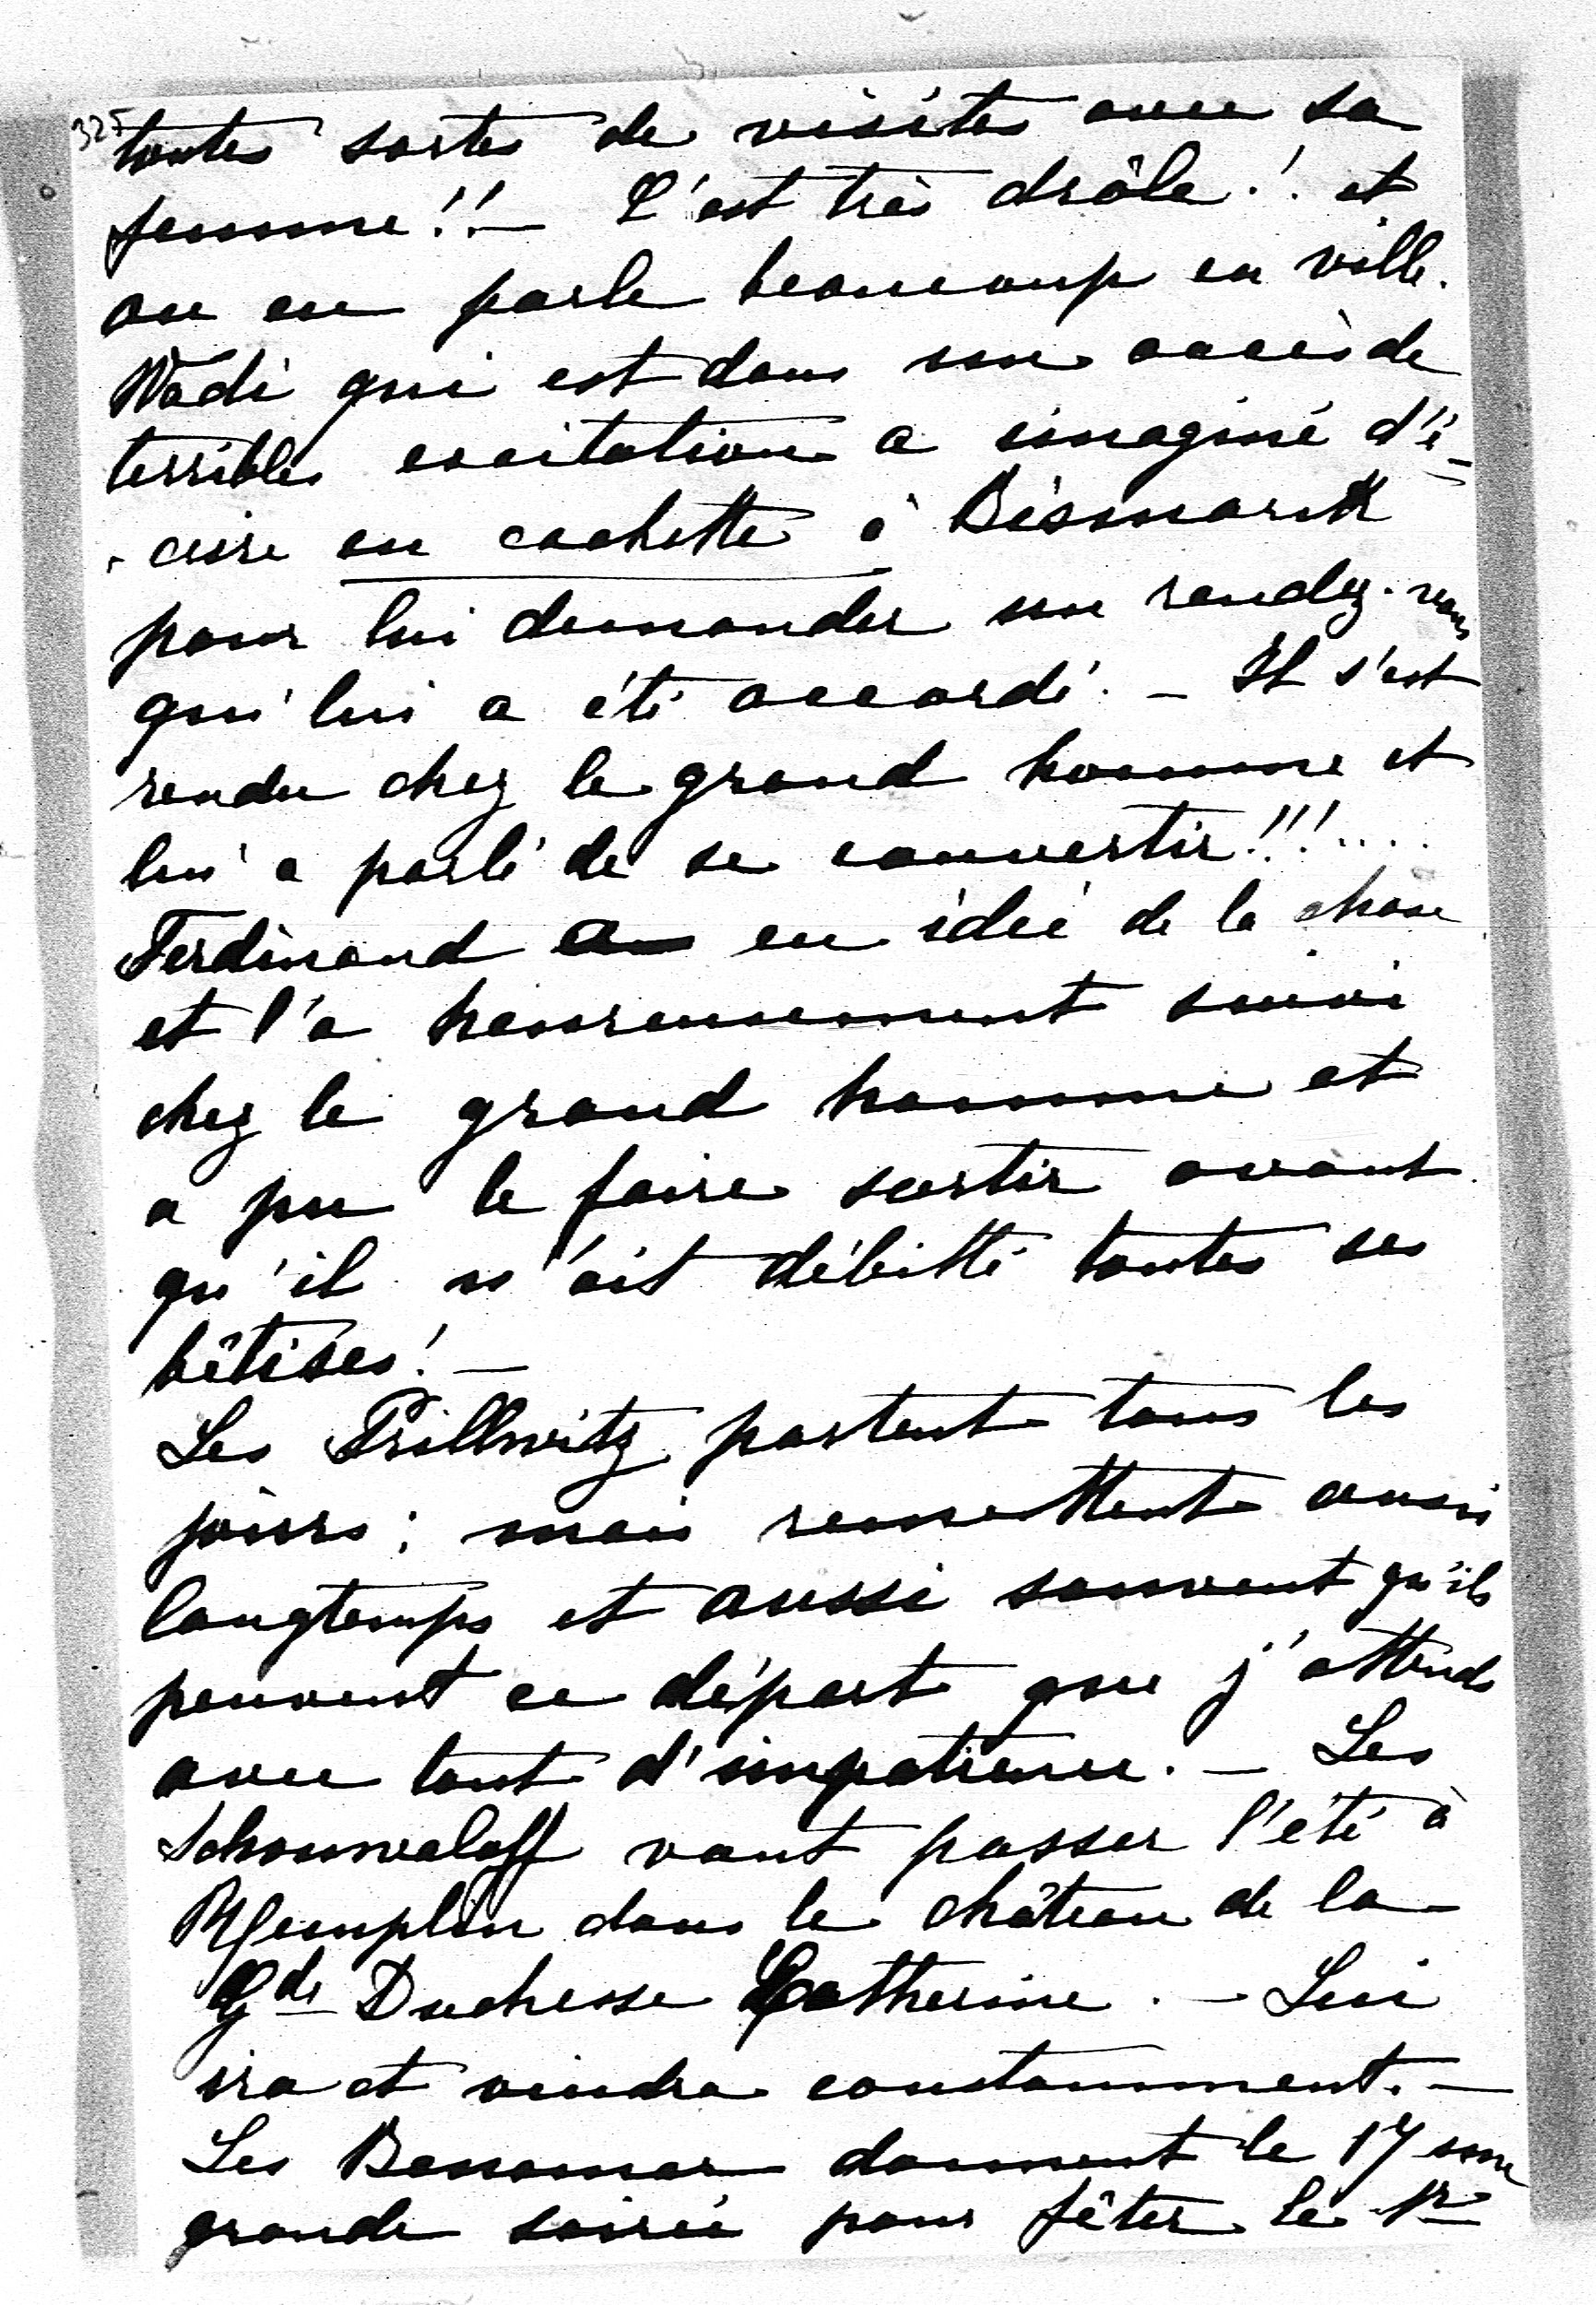 325
toutes sortes de visites avec sa
femme!! — C'est très drôle! et
on en parle beaucoup en ville.
Wadi qui est dans un accès de
terrible excitation a imaginé d'é-
crire en cachette à Bismarck
pour lui demander un rendez-vous
qui lui a été accordé. — Il s'est
rendu chez le grand homme et
lui a parlé de se convertir!!!....
Ferdinand a eu idée de la chose
et l'a heureusement suivi
chez le grand homme et
a pu le faire sortir avant
qu'il n'ait débitté toutes ses
bêtises! —
Les Prillwitz partent tous les
jours; mais remettent aussi
longtemps et aussi souvent qu'ils
peuvent ce départ que j'attends
avec tant d'impatience. — Les
Schouwaloff vont passer l'été à
Remplin dans le château de la
Gde Duchesse Catherine. — Lui
ira et viendra constamment. —
Les Benomar donnent le 17 une
grande soirée pour fêter le Pr